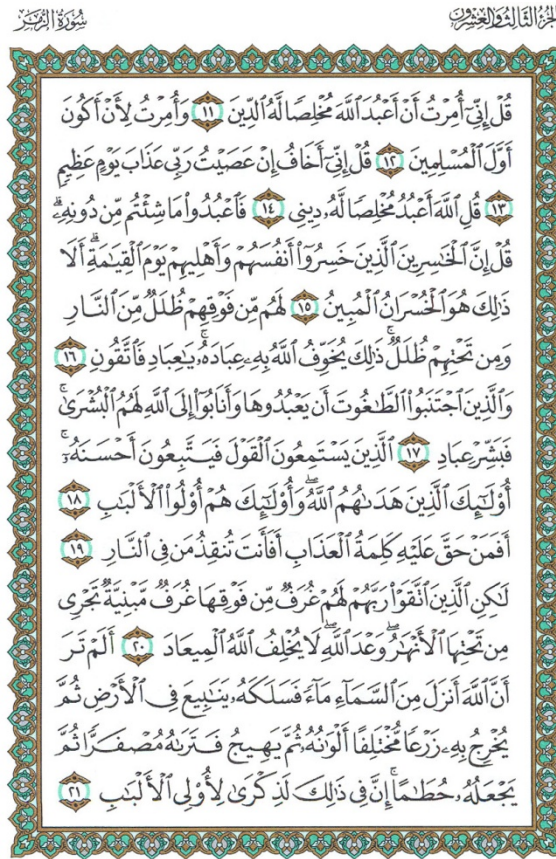 الجزء الثالث والعشرون
سورة الزمر
قُلْ إِنِّىٓ أُمِرْتُ أَنْ أَعْبُدَ ٱللَّهَ مُخْلِصًا لَّهُ ٱلدِّينَ ١١ وَأُمِرْتُ لِأَنْ أَكُونَ
أَوَّلَ ٱلْمُسْلِمِينَ ١٢ قُلْ إِنِّىٓ أَخَافُ إِنْ عَصَيْتُ رَبِّى عَذَابَ يَوْمٍ عَظِيمٍ
١٣ قُلِ ٱللَّهَ أَعْبُدُ مُخْلِصًا لَّهُۥ دِينِى ١٤ فَٱعْبُدُوا۟ مَا شِئْتُم مِّن دُونِهِۦ ۗ
قُلْ إِنَّ ٱلْخَـٰسِرِينَ ٱلَّذِينَ خَسِرُوٓا۟ أَنفُسَهُمْ وَأَهْلِيهِمْ يَوْمَ ٱلْقِيَـٰمَةِ ۗ أَلَا
ذَٰلِكَ هُوَ ٱلْخُسْرَانُ ٱلْمُبِينُ ١٥ لَهُم مِّن فَوْقِهِمْ ظُلَلٌ مِّنَ ٱلنَّارِ
وَمِن تَحْتِهِمْ ظُلَلٌ ۚ ذَٰلِكَ يُخَوِّفُ ٱللَّهُ بِهِۦ عِبَادَهُۥ ۚ يَـٰعِبَادِ فَٱتَّقُونِ ١٦
وَٱلَّذِينَ ٱجْتَنَبُوا۟ ٱلطَّـٰغُوتَ أَن يَعْبُدُوهَا وَأَنَابُوٓا۟ إِلَى ٱللَّهِ لَهُمُ ٱلْبُشْرَىٰ ۚ
فَبَشِّرْ عِبَادِ ١٧ ٱلَّذِينَ يَسْتَمِعُونَ ٱلْقَوْلَ فَيَتَّبِعُونَ أَحْسَنَهُۥٓ ۚ
أُو۟لَـٰٓئِكَ ٱلَّذِينَ هَدَىٰهُمُ ٱللَّهُ ۖ وَأُو۟لَـٰٓئِكَ هُمْ أُو۟لُوا۟ ٱلْأَلْبَـٰبِ ١٨
أَفَمَنْ حَقَّ عَلَيْهِ كَلِمَةُ ٱلْعَذَابِ أَفَأَنتَ تُنقِذُ مَن فِى ٱلنَّارِ ١٩
لَـٰكِنِ ٱلَّذِينَ ٱتَّقَوْا۟ رَبَّهُمْ لَهُمْ غُرَفٌ مِّن فَوْقِهَا غُرَفٌ مَّبْنِيَّةٌ تَجْرِى
مِن تَحْتِهَا ٱلْأَنْهَـٰرُ ۖ وَعْدَ ٱللَّهِ ۖ لَا يُخْلِفُ ٱللَّهُ ٱلْمِيعَادَ ٢٠ أَلَمْ تَرَ
أَنَّ ٱللَّهَ أَنزَلَ مِنَ ٱلسَّمَآءِ مَآءً فَسَلَكَهُۥ يَنَـٰبِيعَ فِى ٱلْأَرْضِ ثُمَّ
يُخْرِجُ بِهِۦ زَرْعًا مُّخْتَلِفًا أَلْوَٰنُهُۥ ثُمَّ يَهِيجُ فَتَرَىٰهُ مُصْفَرًّا ثُمَّ
يَجْعَلُهُۥ حُطَـٰمًا ۚ إِنَّ فِى ذَٰلِكَ لَذِكْرَىٰ لِأُو۟لِى ٱلْأَلْبَـٰبِ ٢١